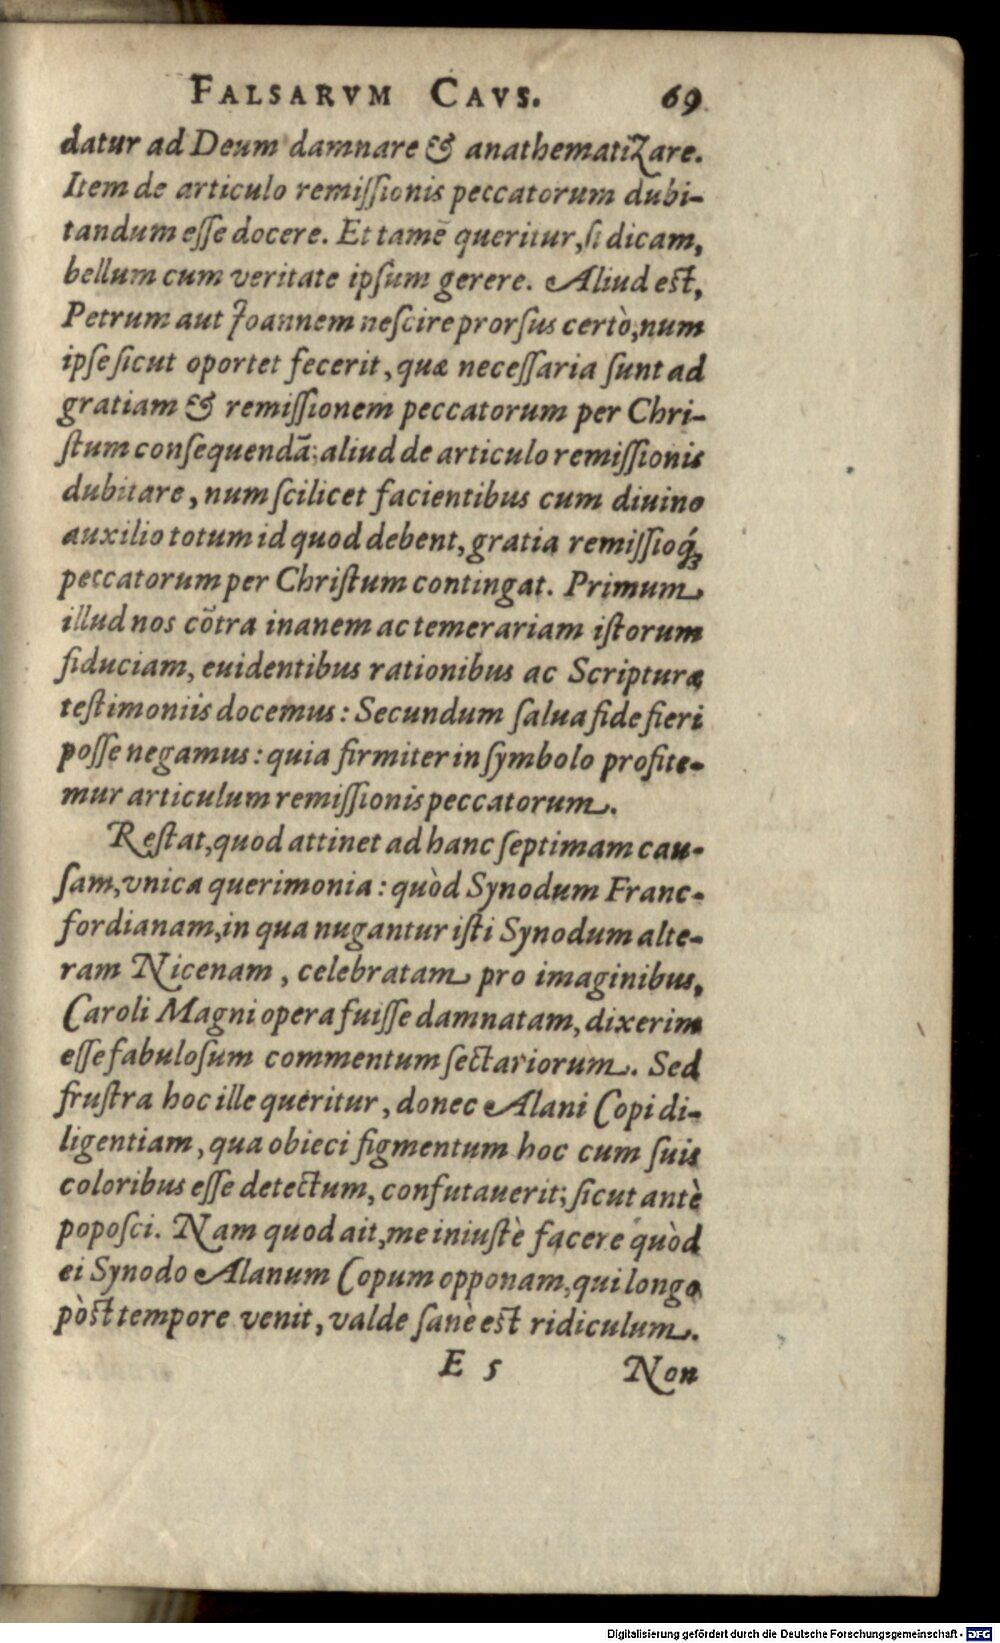 FALSARVM CAVS. 69
datur ad Deum damnare & anathematizare.
Item de articulo remiſſionis peccatorum dubi-
tandum eſſe docere. Et tamē queritur, ſi dicam,
bellum cum veritate ipſum gerere. Aliud eſt,
Petrum aut Joannem neſcire prorſus certò, num
ipſe ſicut oportet fecerit, quæ neceſſaria ſunt ad
gratiam & remiſſionem peccatorum per Chri-
ſtum conſequendā: aliud de articulo remiſſionis
dubitare, num ſcilicet facientibus cum diuino
auxilio totum id quod debent, gratia remiſſioq́ꝫ
peccatorum per Chriſtum contingat. Primum
illud nos cōtra inanem ac temerariam iſtorum
fiduciam, euidentibus rationibus ac Scripturæ
teſtimoniis docemus: Secundum ſalua fide fieri
poſſe negamus: quia firmiter in ſymbolo profite-
mur articulum remiſſionis peccatorum.
Reſtat, quod attinet ad hanc ſeptimam cau-
ſam, vnica querimonia: quòd Synodum Franc-
fordianam, in qua nugantur iſti Synodum alte-
ram Nicenam, celebratam pro imaginibus,
Caroli Magni opera fuiſſe damnatam, dixerim
eſſe fabuloſum commentum ſectariorum. Sed
fruſtra hoc ille queritur, donec Alani Copi di-
ligentiam, qua obieci figmentum hoc cum ſuis
coloribus eſſe detectum, confutauerit; ſicut antè
popoſci. Nam quod ait, me iniuſtè facere quòd
ei Synodo Alanum Copum opponam, qui longo
pòſt tempore venit, valde ſanè eſt ridiculum.
E 5 Non
Digitalisierung gefördert durch die Deutsche Forschungsgemeinschaft - DFG